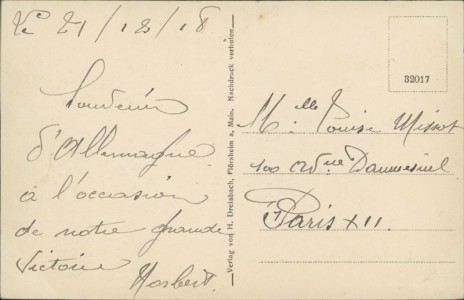 Le 21/12/18
Souvenir
d'Allemagne
à l'occasion
de notre grande
Victoire
Norbert.
Verlag von H. Dreisbach, Flörsheim a. Main. Nachdruck verboten.
32017
Melle Louise
100 Avenue Daumesnil
Paris XII.